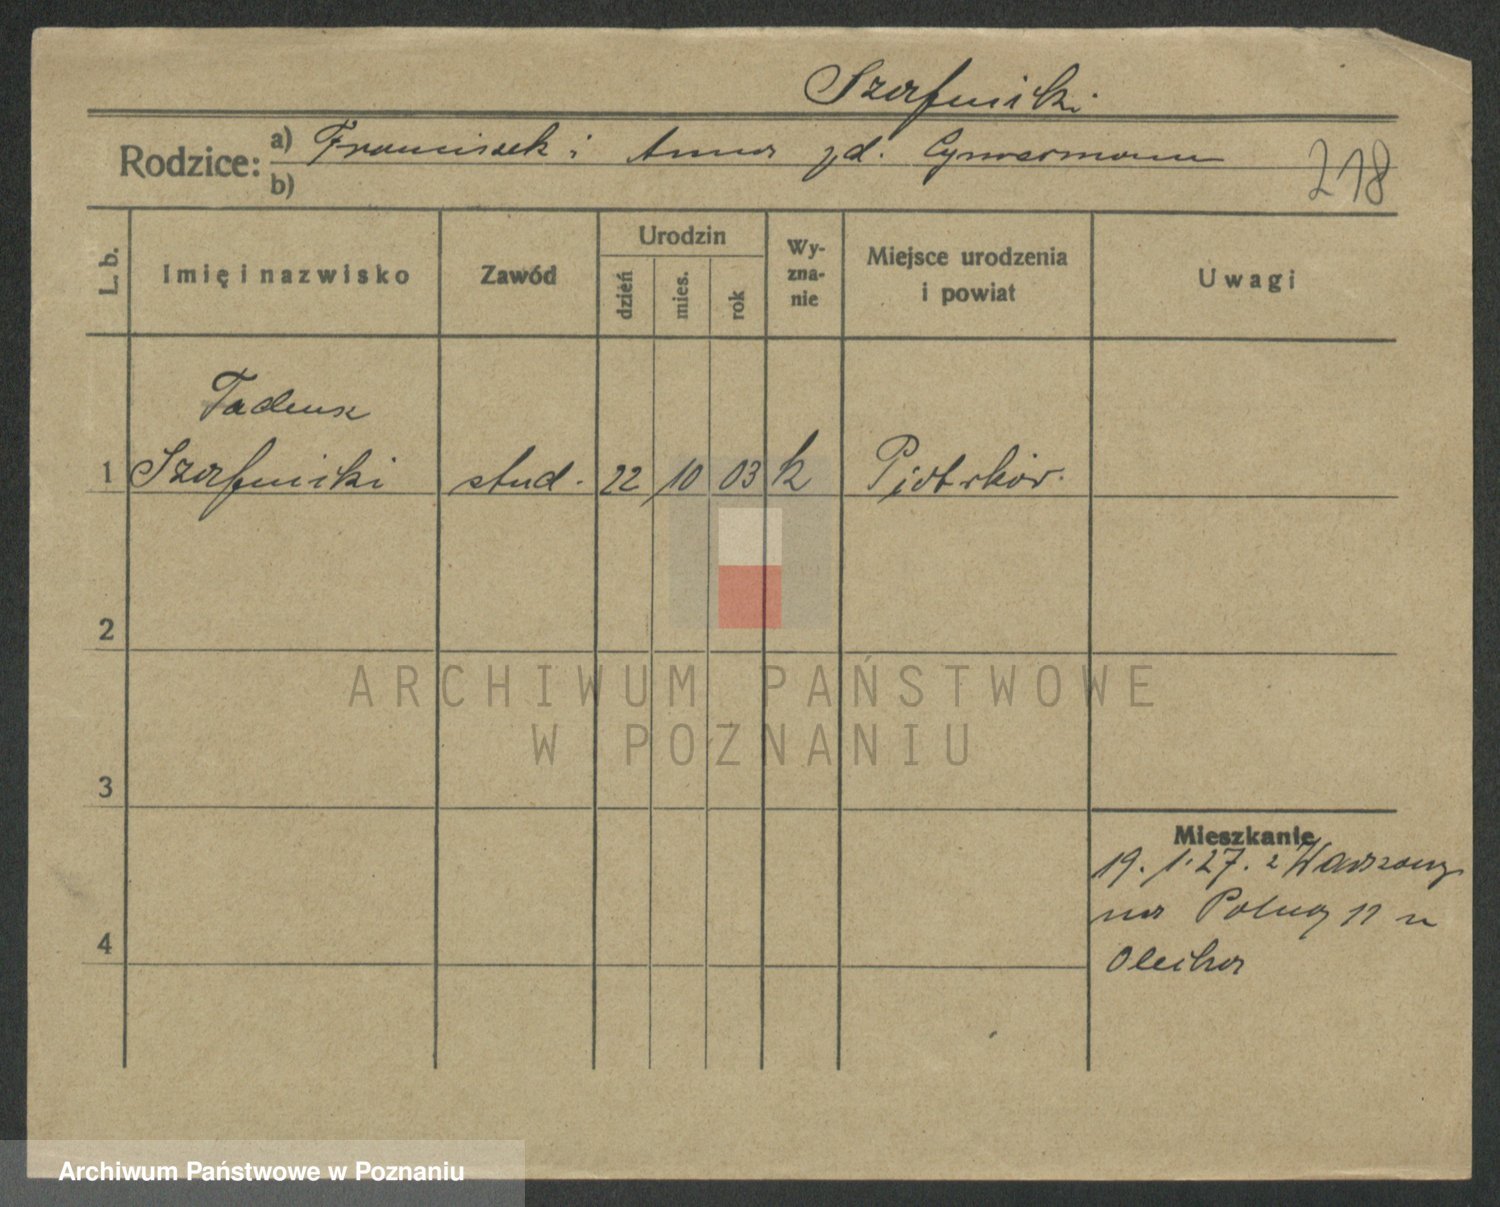 Szafnicki
Rodzice: a) Franciszek i Anna zd. Cynermann
b)
218
L. b.
Imię i nazwisko
Zawód
Urodzin
dzień
mies.
rok
Wy-
zna-
nie
Miejsce urodzenia
i powiat
Uwagi
Tadeusz
1 Szafnicki stud. 22 10 03 k Piotrków.
2
3
4
Mieszkanie
19. 1. 27. z Warszawy
na Polną 11 u
ARCHIWUM PAŃSTWOWE
W POZNANIU
Archiwum Państwowe w Poznaniu